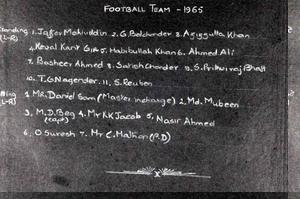 FOOTBALL TEAM - 1965
Standing 1. Jafar Mohiuddin 2. G. Balchander 3. Azizulla Khan
(L-R)
4. Keval Kant 5. Habibullah Khan 6. Ahmed Ali
7. Basheer Ahmed 8. Satish Chander 9. S. Prithvi raj Bhatt
10. T. G Nagender. 11. S. Reuben
1 MR. Daniel Sam (Master incharge) 2. Md. Mubeen
(L-R)
3. M. D. Beg 4. Mr K.K Jacob 5. Nasir Ahmed
(Capt)
6. O Suresh 7. Mr C. (P.D)